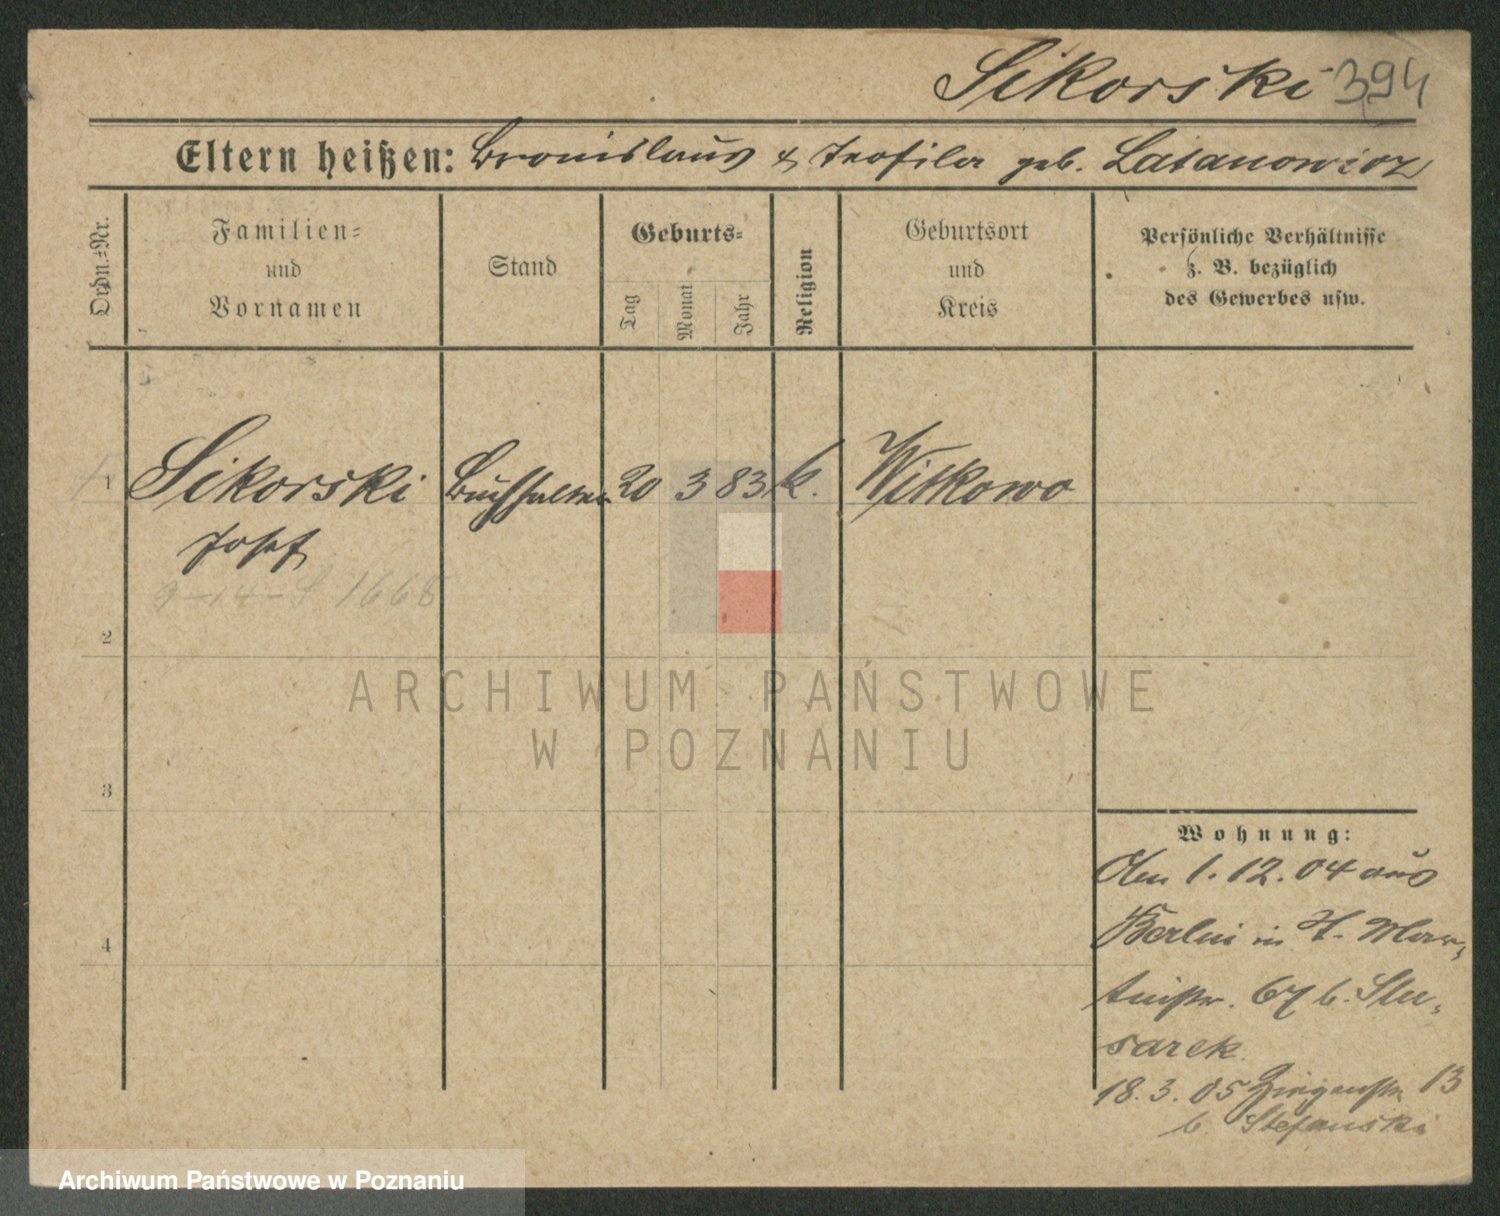 Sikorski 394
Eltern heißen: Bronislaus & Teofila geb. Latanowicz
Ordn.=Nr.
Familien=
und
Vornamen
Stand
Geburts=
Tag
Monat
Jahr
Religion
Geburtsort
und
Kreis
Persönliche Verhältnisse
z. B. bezüglich
des Gewerbes usw.
1 Sikorski Buchhalter 20 3 83 k. Witkowo
Josef
9-14- 1668
2
3
4
Wohnung:
Den 1.12.04 aus
Berlin in St. Mar-
tinstr. 67 b. Slu-
sarek
18.3.05 13
b. Stefanski
ARCHIWUM PAŃSTWOWE
W POZNANIU
Archiwum Państwowe w Poznaniu